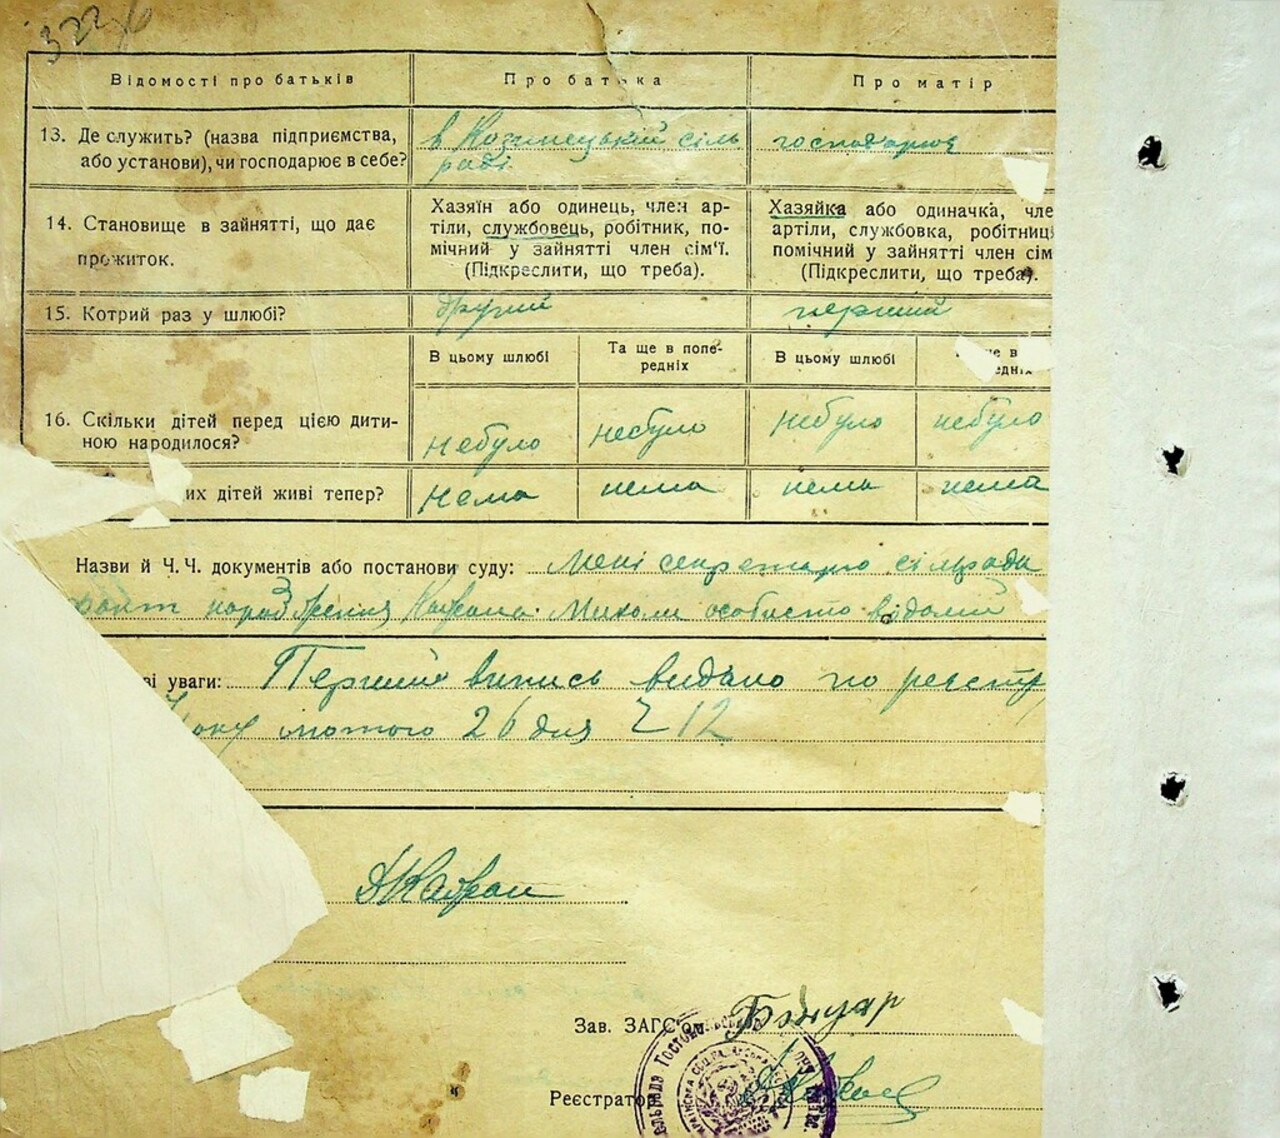 322
Відомості про батьків
Про батька
Про матір
13. Де служить? (назва підприємства,
або установи), чи господарює в себе?
в Козинецькій сіль
раді
господарює
14. Становище в зайнятті, що дає
прожиток.
Хазяїн або одинець, член ар-
тіли, службовець, робітник, по-
мічний у зайнятті член сім'ї.
(Підкреслити, що треба).
Хазяйка або одиначка, чле
артіли, службовка, робітниц
помічний у зайнятті член сім
(Підкреслити, що треба).
15. Котрий раз у шлюбі?
другий
перший
В цьому шлюбі
Та ще в попе-
редніх
В цьому шлюбі
ще в
едніх
16. Скільки дітей перед цією дити-
ною народилося?
небуло
небуло
небуло
небуло
их дітей живі тепер?
нема
нема
нема
нема
Назви й Ч.Ч. документів або постанови суду: Мені секретарю сілради
факт Миколи особисто відомий
ві уваги: Перший випись видано по реєстр
року лютого 26 дня 212
Зав. ЗАГС'ом Бондар
Реєстратор